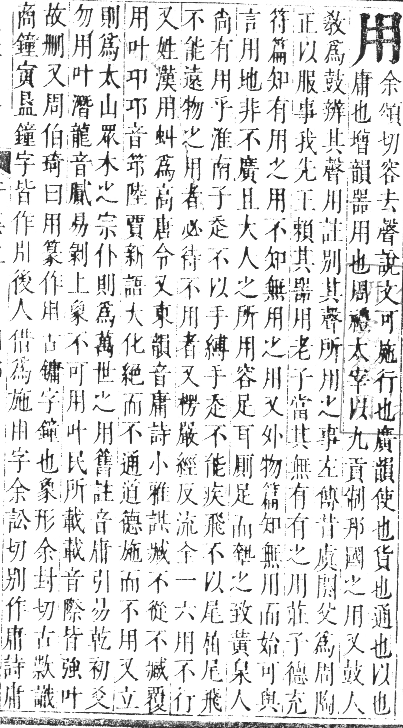 用
余頌切容去聲說文可施行也廣韻使也貨也通也以也
庸也增韻器用也周禮太宰以九貢制邦國之用又鼓人
敎為鼓辨其聲用註別其聲所用之事左傳昔虞閼父為周陶
正以服事我先王賴其器用老子當其無有有之用莊子德充
符篇知有用之用不知無用之用又外物篇知無用而始可與
言用地非不廣且大人之所用容足耳厠足而墊之致黃泉人
尚有用乎淮南子走不以手縛手走不能疾飛不以尾尾飛
不能遠物之用者必待不用者又楞嚴經反流全一六用不行
又姓漢用虯為高唐令又東韻音庸詩小雅謀臧不從不臧覆
用叶邛邛音筇陸賈新語大化絕而不通道德施而不用又立
則為太山眾木之宗仆則為萬世之用舊註音庸引易乾初爻
勿用叶潛龍音膩易剝上象不可用叶民所載載音際皆強叶
故刪又周伯琦曰用篆作用古鏞字鐘也象形余封切古款識
商鐘寅簋鐘字皆作後人借為施用字余訟切別作庸詩庸